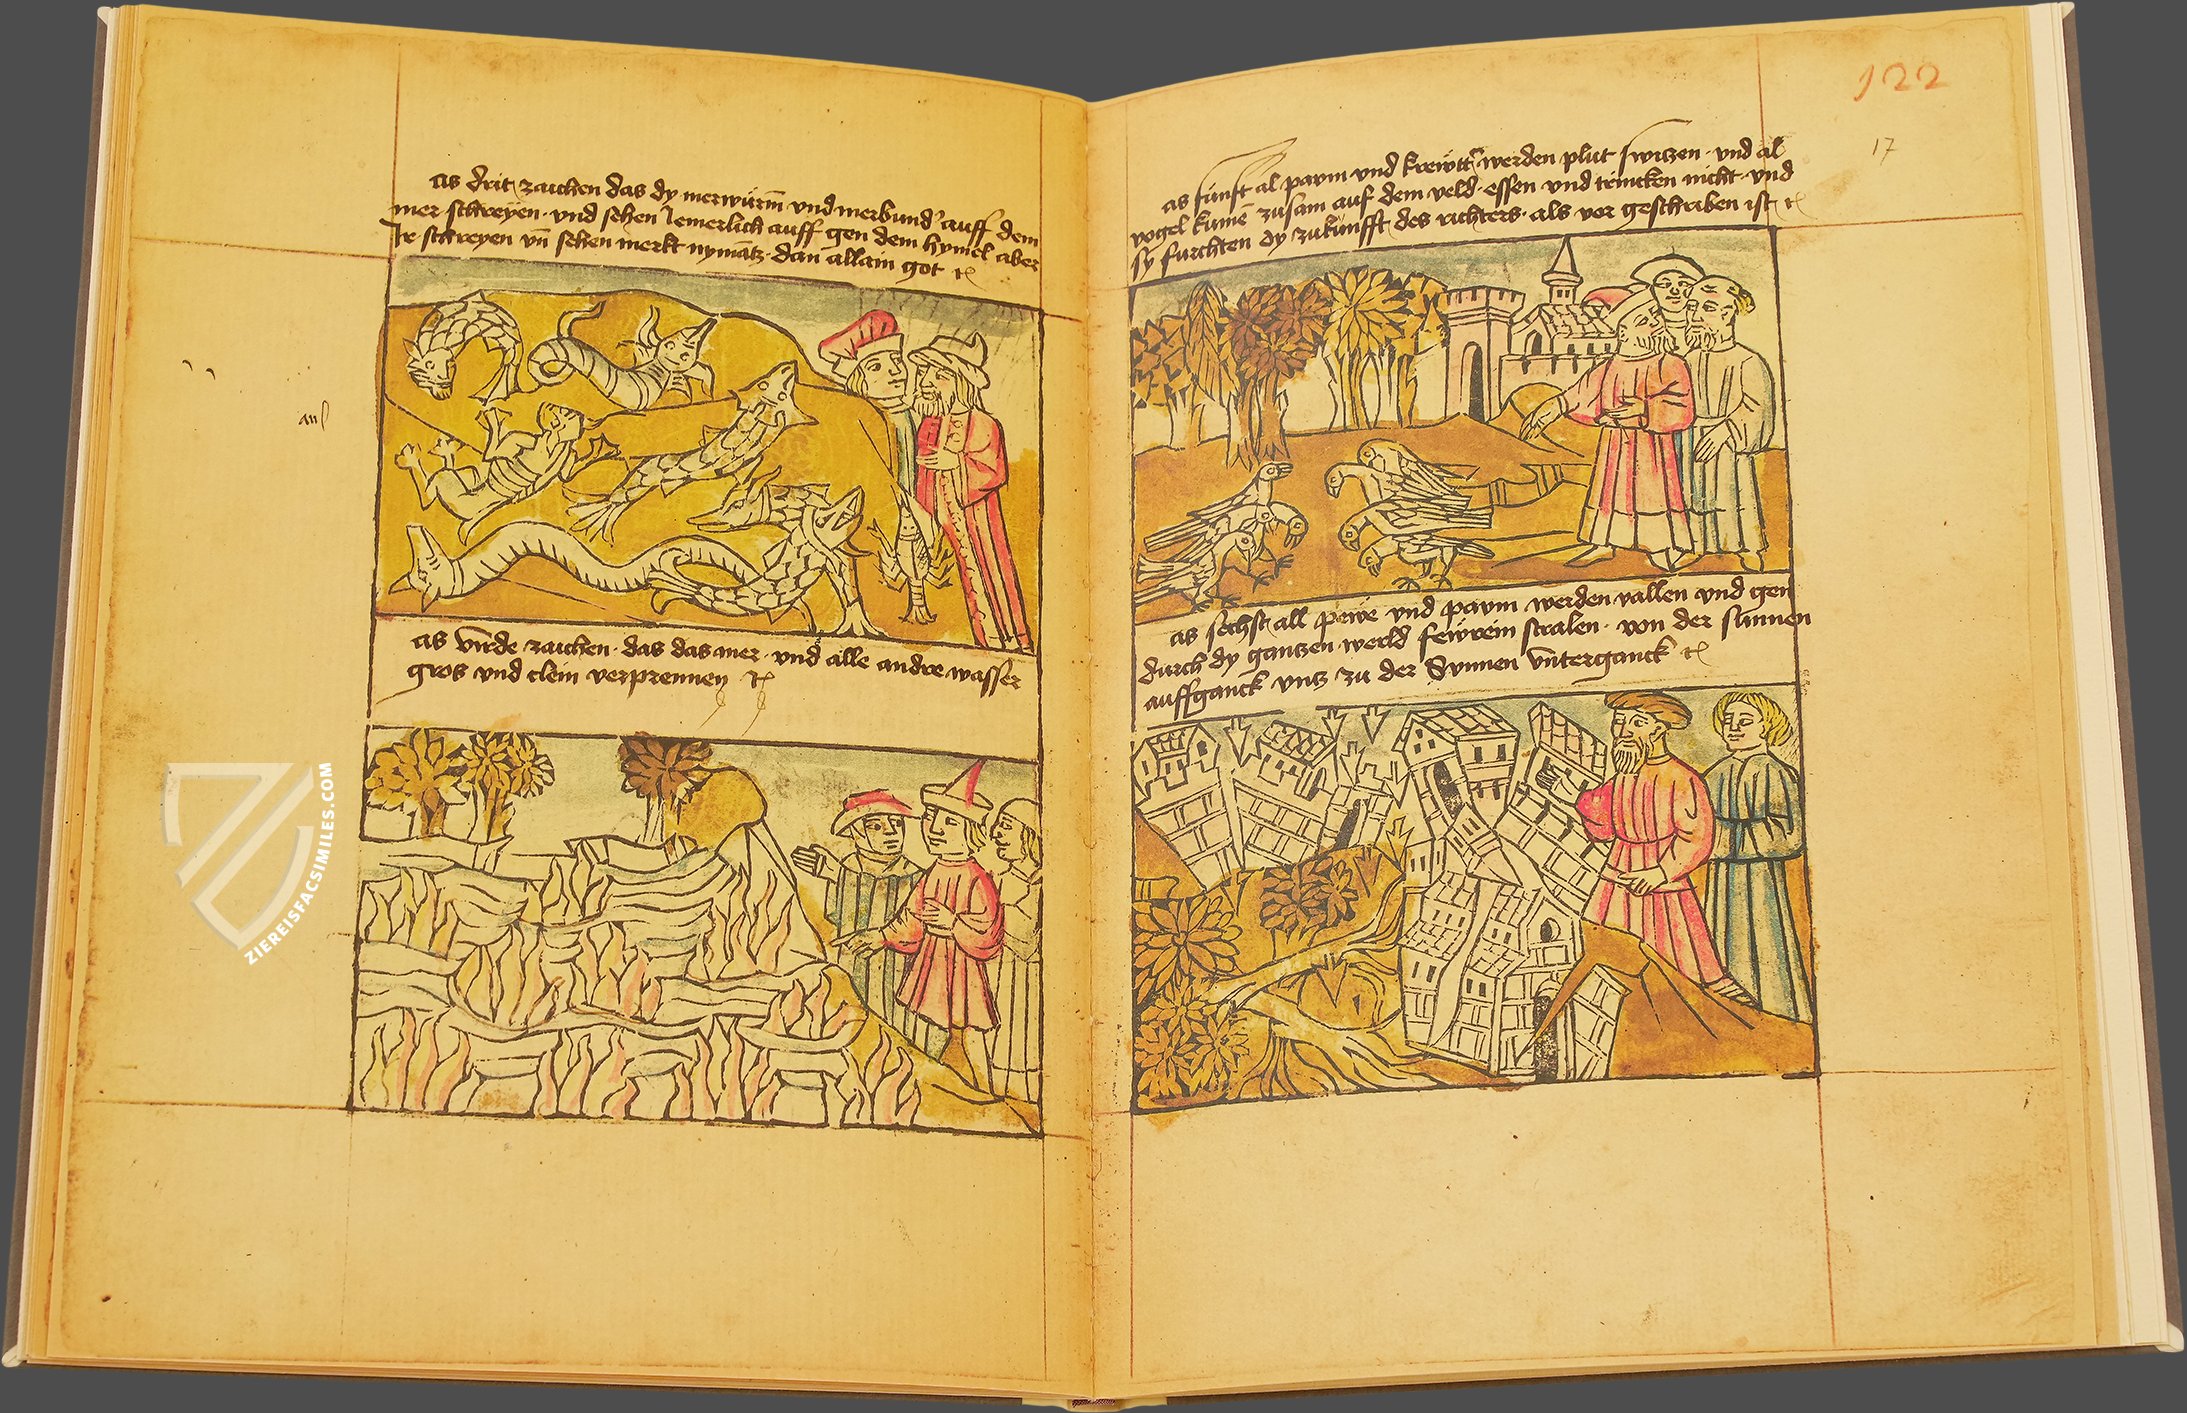 as drit zaichen das dy merwürm̄ vnd merbund' auff dem
mer schreyen · vnd sehen Jemerlich auff gen dem hymel aber
Ir schreyen vn̄ sehen merkt nymātz · dan allain got ⁊c
auſ
as virde zaichen · das das mer · vnd alle andre wasser
gros vnd clein verprennen ⁊c
ZIEREISFACSIMILES.COM
122
17
as fünft al pavm vnd krewtt' werden plut switzen · vnd al
vogel kumē zusam auf dem veld · essen vnd trincken nicht · vnd
sy furchten dy zukunfft des richters · als vor geschriben ist ⁊c
as sechst all pewe vnd pavm werden vallen vnd gen
durch dy gantzen werld fewrein stralen · von der sunnen
auffganck vntz zu der Synnen vnterganck ⁊c